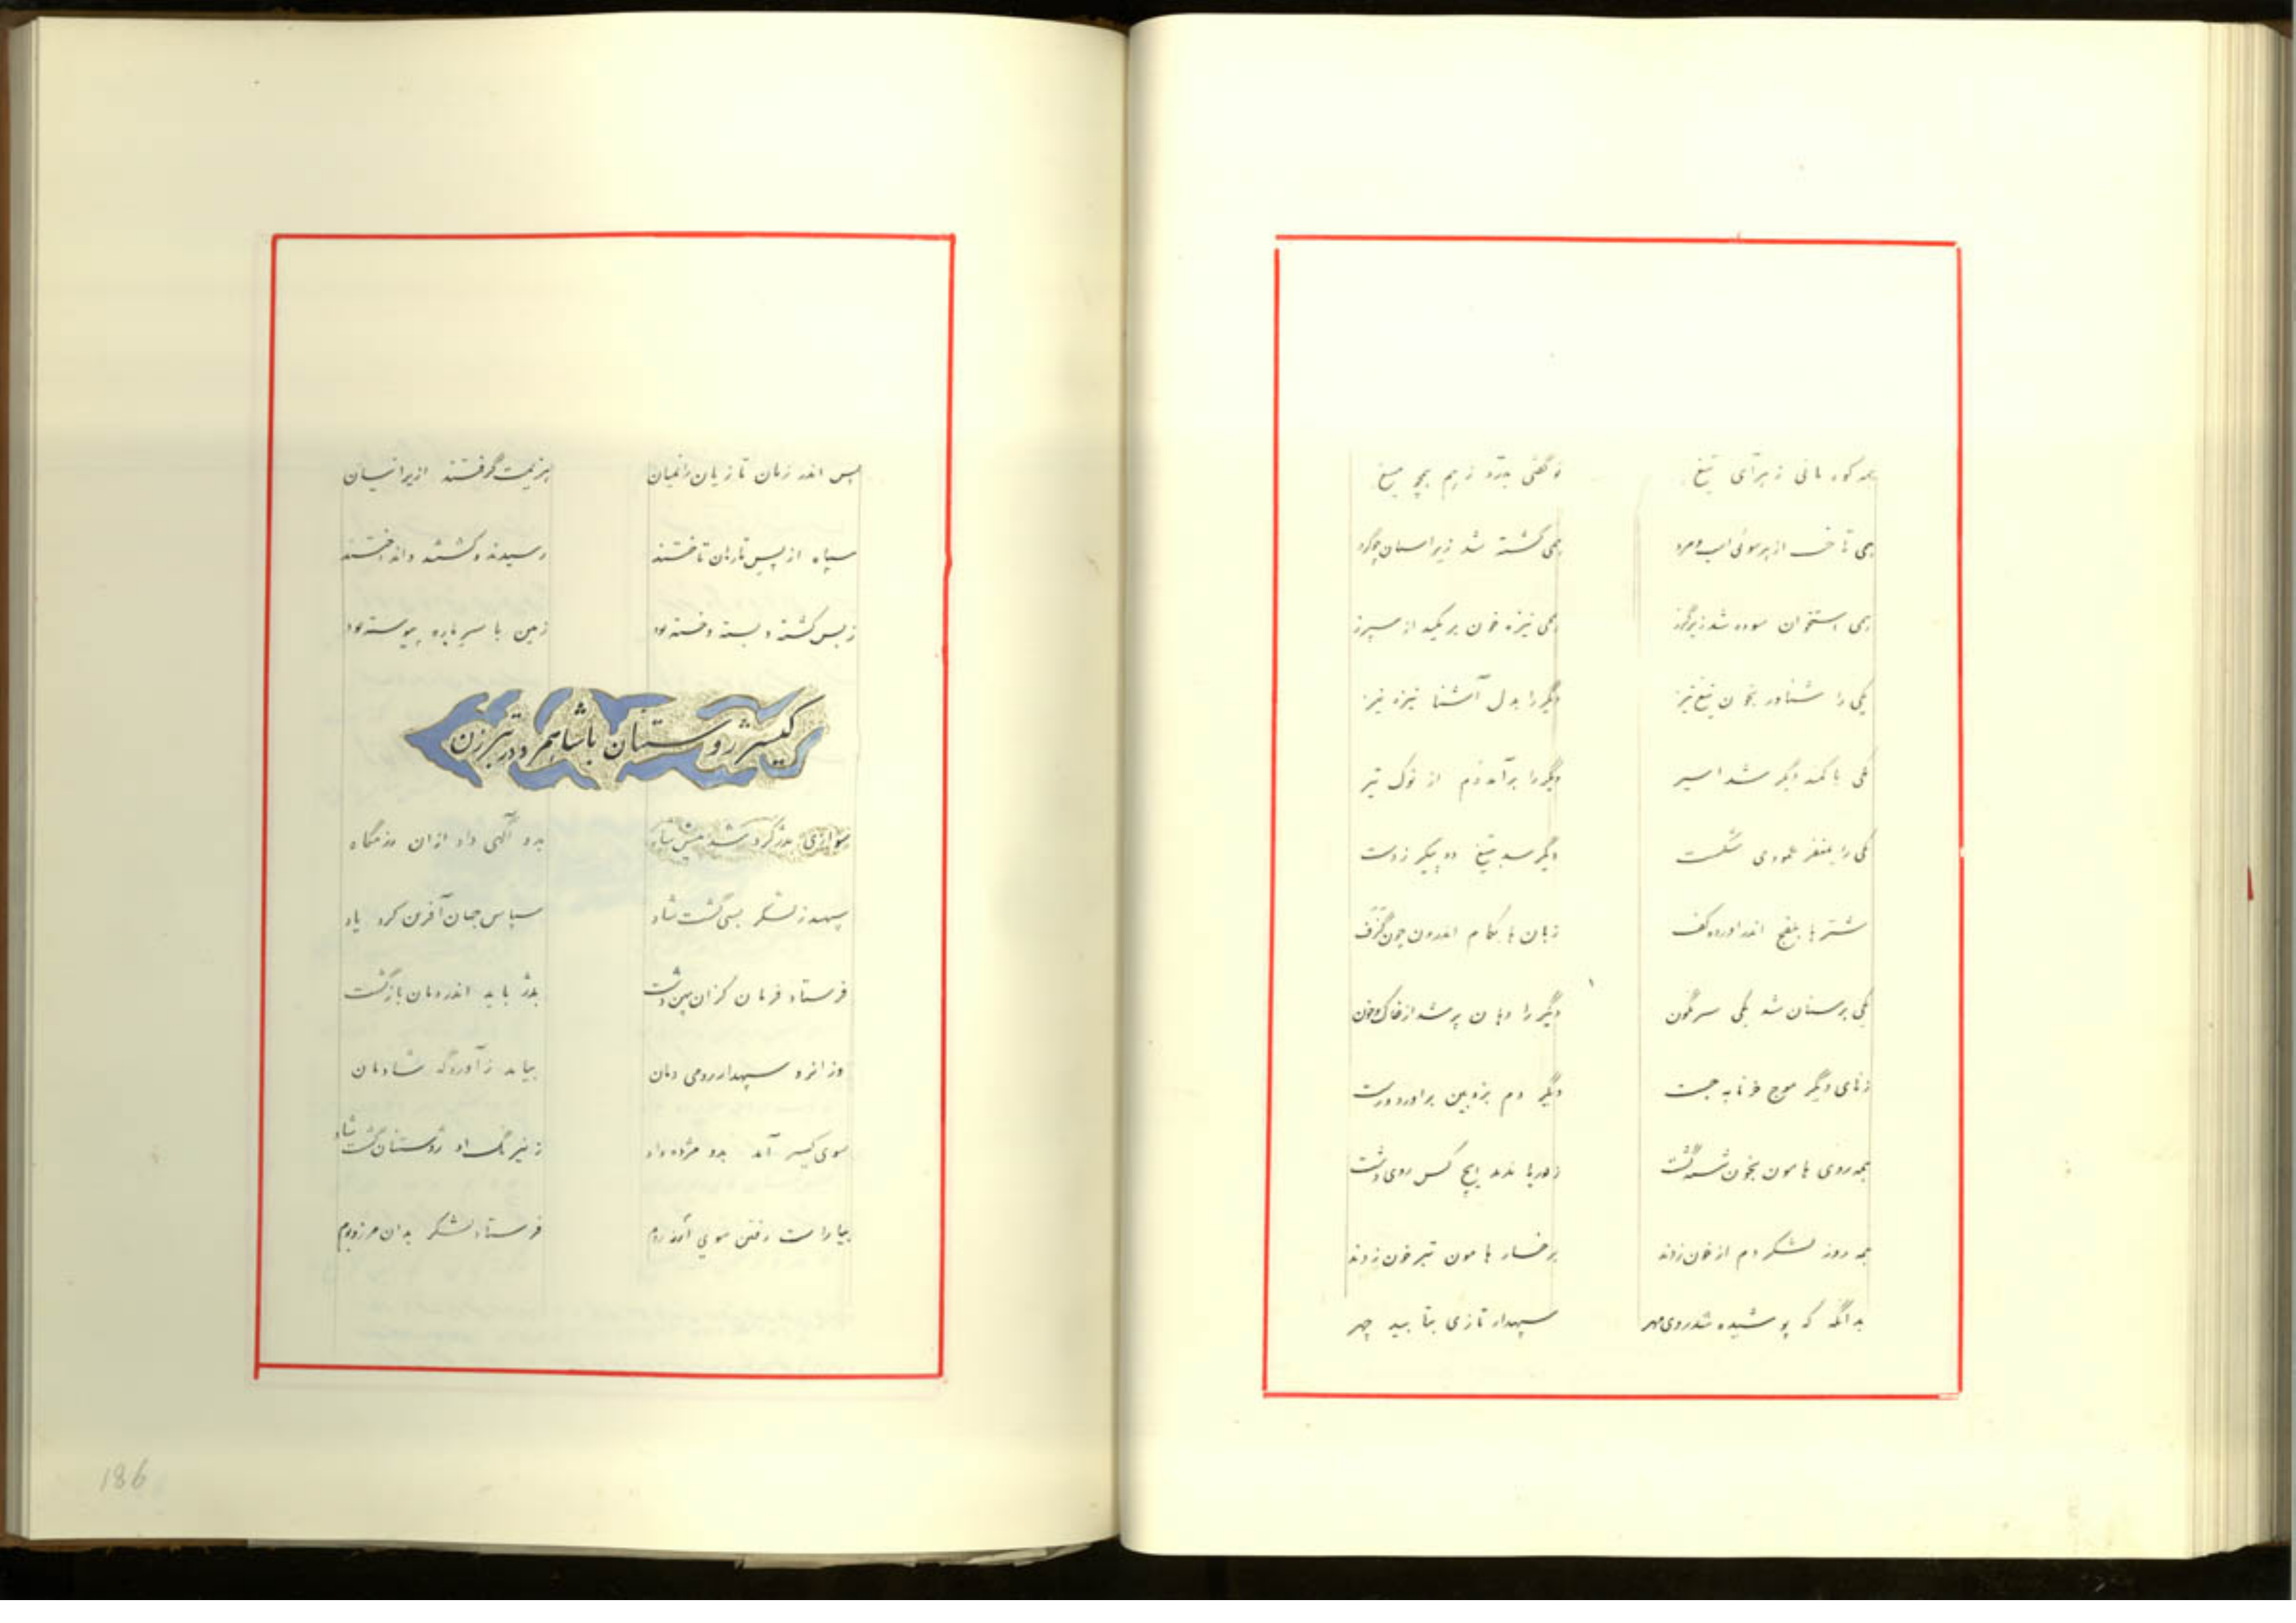 همه کوه مانی ز هرای تیغ تو گفتی بدرد ز هم همچو میغ
همی تاخت از هر سوئی اسب و مرد همی گشته شد زیر اسبان چو گرد
همی استخوان سوده شد زیر گرز همی نیزه خون بر مکید از سپرز
یکی را شناور بخون تیغ تیز دیگر را بدل آشنا نیزه نیز
یکی با کمند دیگر شد اسیر دیگر را برآمد دم از نوک تیر
یکی را بمغفر عمودی شکست دیگر سد بتیغ دو پیکر ز دست
شترها بلفج اندر اورده کف زبان ها بکام اندرون چون
یکی برسنان شد یکی سرنگون دیگر را دهان پر شد از خاک و خون
ز نای دیگر موج خونابه جست دیگر دم بزوبین براورد و رست
همه روی هامون بخون شسته گشت ندید ایچ کس روی دشت
همه روز لشکر دم از خون زدند برخسار هامون تبر خون زدند
بدانگه که پوشیده شد روی مهر سپهدار تازی بتابید چهر
پس اندر زمان تازیان را نمیان هزیمت گرفتند از ایرانسیان
سپاه از پس تازیان تاختند رسیدند و کشتند و انداختند
ز بس کشته و بسته و خسته بود زمین با سر باره پیوسته بود
ژوستنان با شاهم در
گرد شد پیش شاه بدو آگهی داد از آن رزمگاه
سپهبد ز لشکر بسی گشت شاد سپاس جهان آفرین کرد یاد
فرستاد فرمان کزان پهن دشت بدژ باید اندر زمان بازگشت
وز انرو سپهدار رومی دمان بیامد ز آوردگه شادمان
سوی کیسر آمد بدو مژده داد ز نیرنگ او ژوستنان گشت شاد
بیاراست رفتن سوی روم فرستاد لشکر بدان مرز و بوم
186